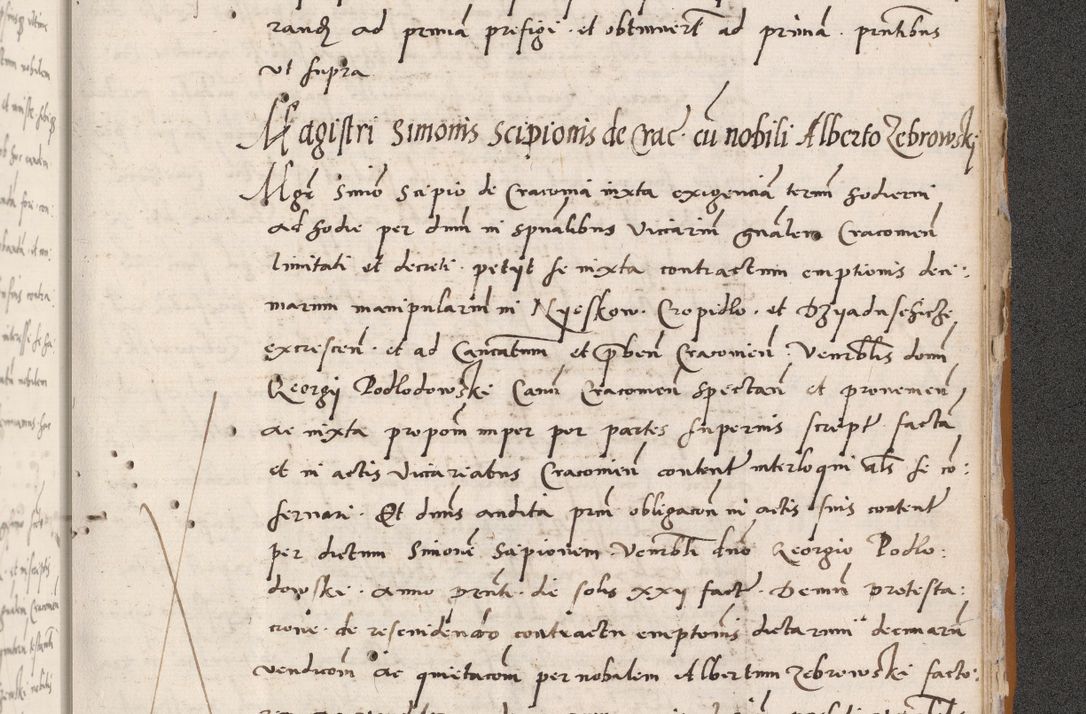 randum ad primam prefigi et obtinuert ad primam prntibus
ut supra
Magistri Simonis Scipionis de Crac. cu nobili Alberto Zebrowski
Mgr Simo Scipio de Cracovia iuxta exigencia termi hodierni
ad hodie per dnm in spualibus Vicariu gnalem Cracovien
limitati et decreti petiit se iuxta contractum emptionis deci:
marum manipularium in Nyeskow Cropidlo et Dzyadusehicze
excrescen et ad Canonicatum et prben Cracovien Venrblis domi
Georgij Podlodowski Canon Cracovien spectan et provenien
ac iuxta propom nuper por partes supernis script facta
et in actis Vicariatus Cracovien content interloqui als se co:
servari Et dnus audita prm obligacon in actis suis content
per dictum Simone Scipionem Venrbli dno Georgio Podlo:
dowski anno prnti die solis xxij fact Demu protesta:
cione de rescindendo contractu emptionis dictarum decimaru
vendicom ac quietacom per nobilem Albertum Zebrowski facto: